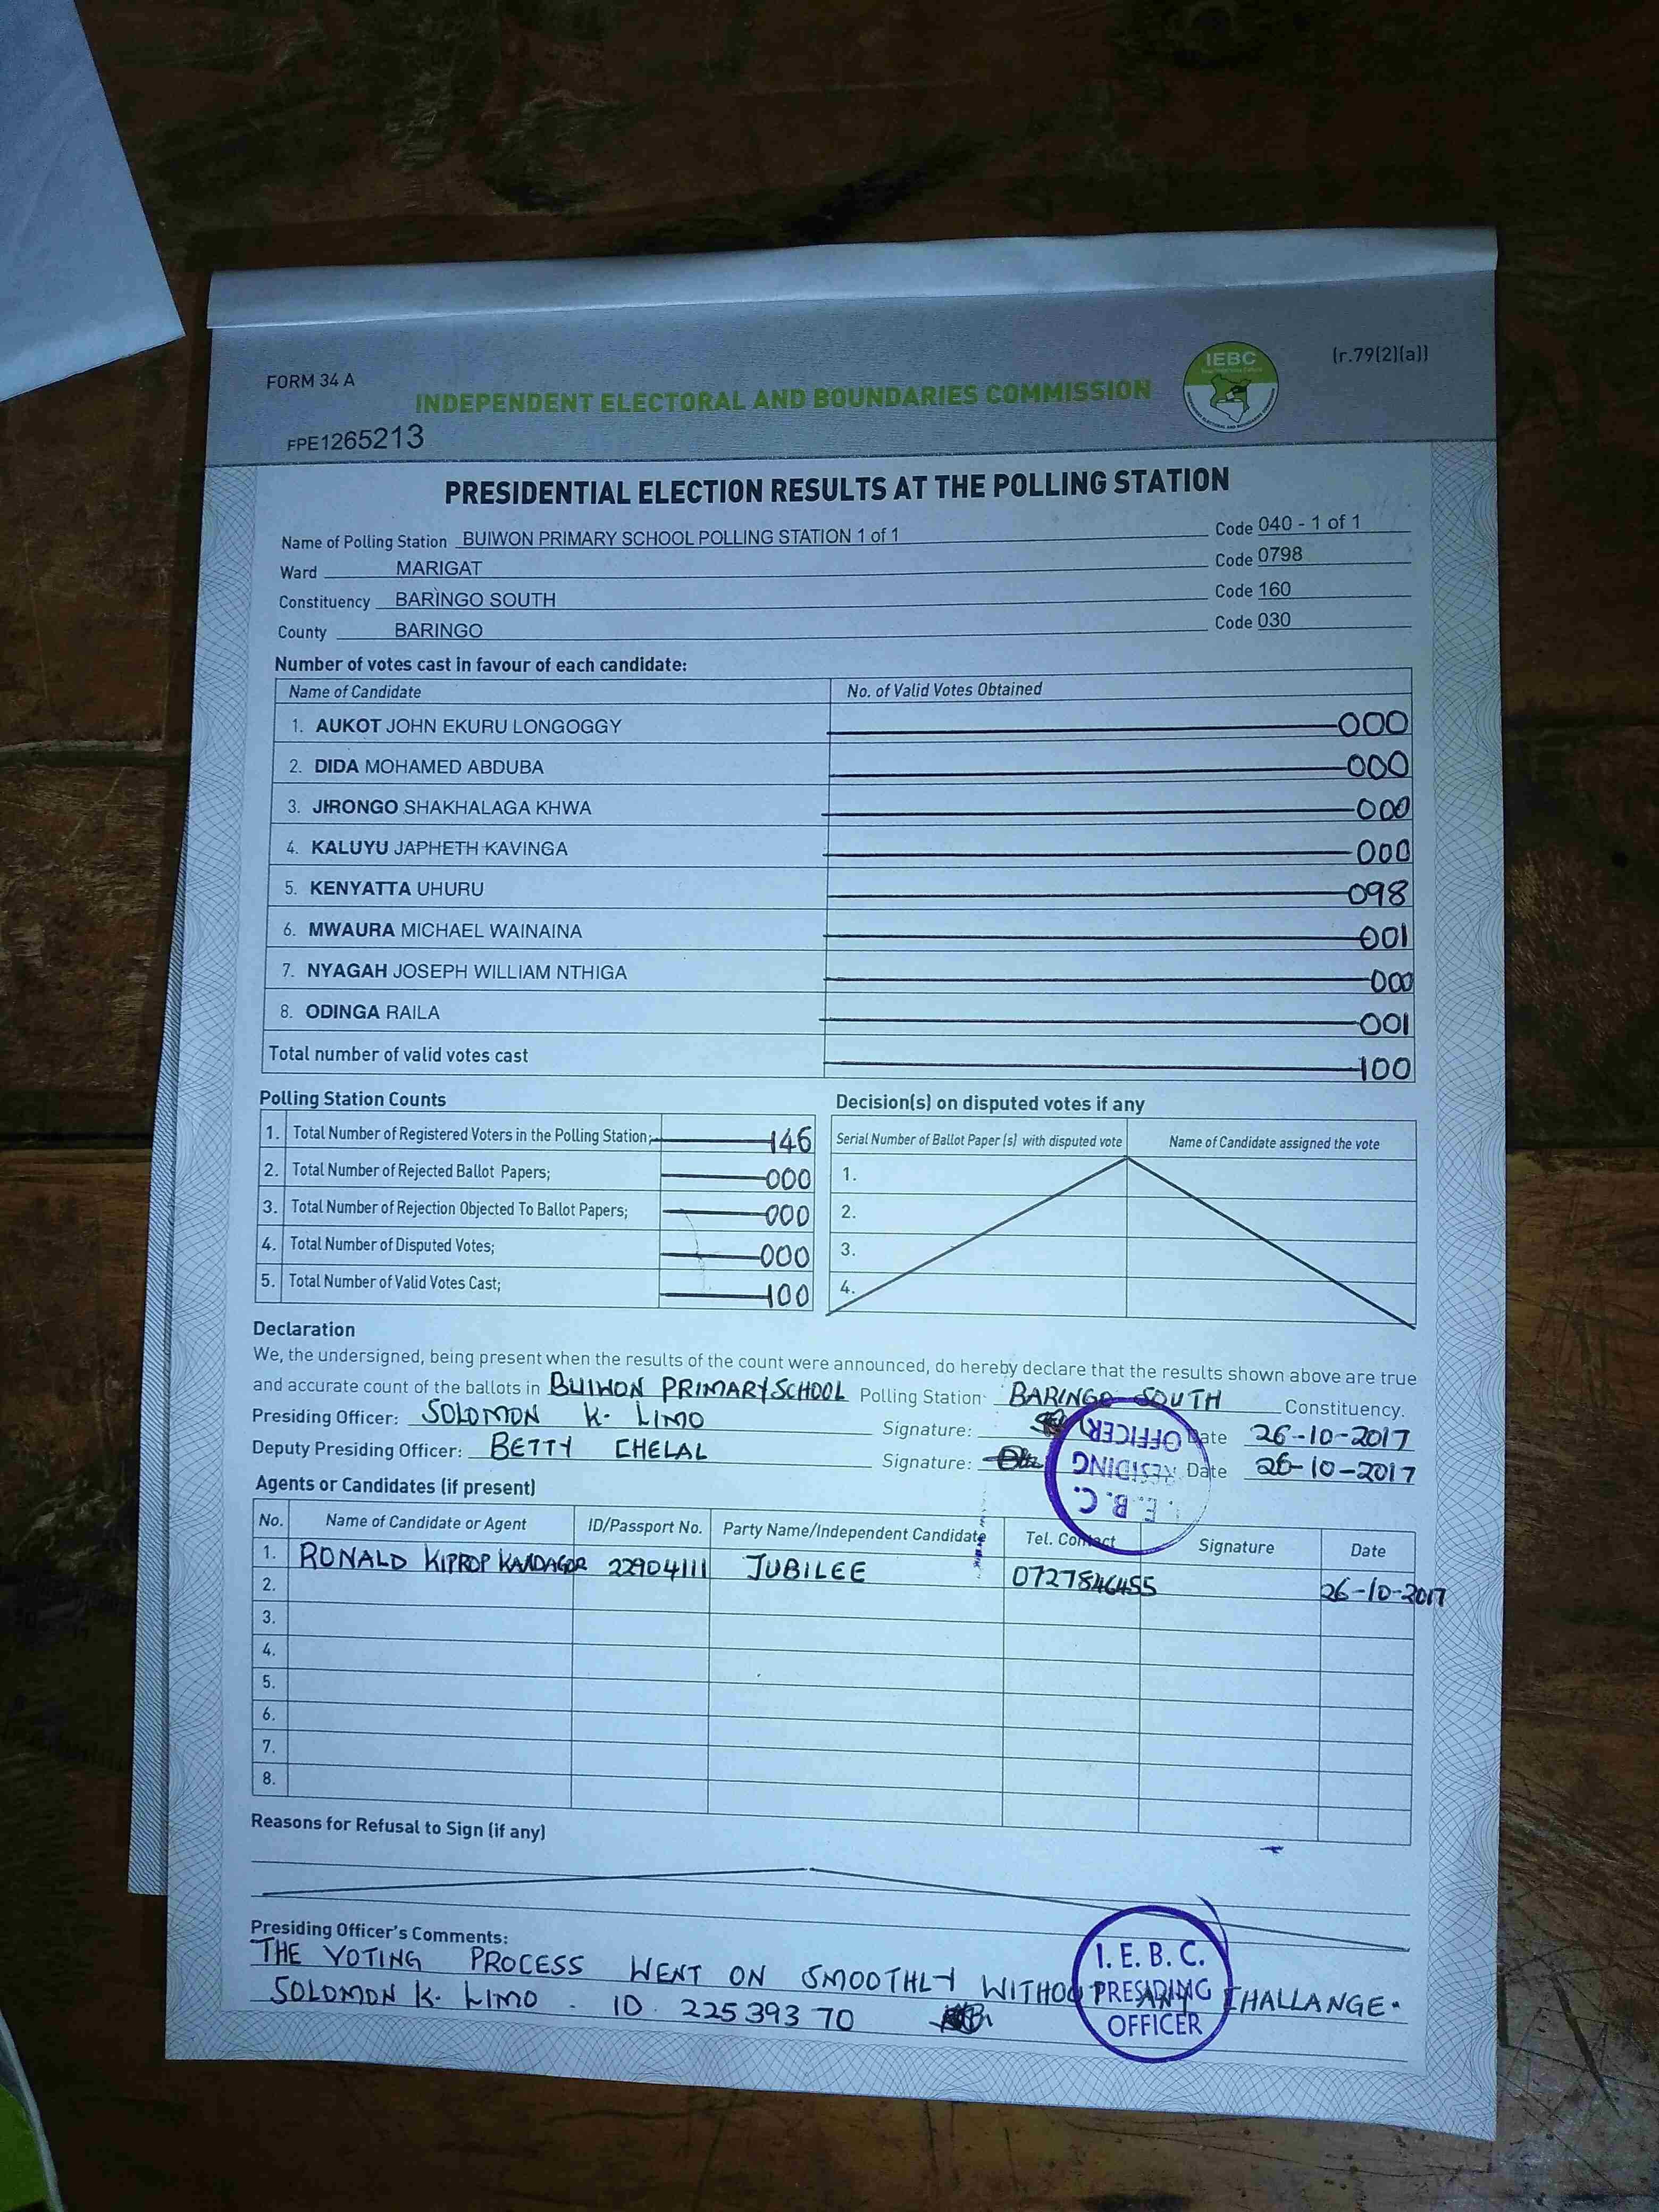 (r.79(2)(a))
IEBC
FORM 34 A
INDEPENDENT ELECTORAL AND BOUNDARIES COMMISSION
FPE1265213
PRESIDENTIAL ELECTION RESULTS AT THE POLLING STATION
Name of Polling Station BUIWON PRIMARY SCHOOL POLLING STATION 1 of 1 Code 040 - 1 of 1
Ward MARIGAT Code 0798
Constituency BARINGO SOUTH Code 160
County BARINGO Code 030
Number of votes cast in favour of each candidate:
Name of Candidate No. of Valid Votes Obtained
1. AUKOT JOHN EKURU LONGOGGY 000
2. DIDA MOHAMED ABDUBA 000
3. JIRONGO SHAKHALAGA KHWA 000
4. KALUYU JAPHETH KAVINGA 000
5. KENYATTA UHURU 098
6. MWAURA MICHAEL WAINAINA 001
7. NYAGAH JOSEPH WILLIAM NTHIGA 000
8. ODINGA RAILA 001
Total number of valid votes cast 100
Polling Station Counts
1. Total Number of Registered Voters in the Polling Station; 146
2. Total Number of Rejected Ballot Papers; 000
3. Total Number of Rejection Objected To Ballot Papers; 000
4. Total Number of Disputed Votes; 000
5. Total Number of Valid Votes Cast; 100
Decision(s) on disputed votes if any
Serial Number of Ballot Paper (s) with disputed vote Name of Candidate assigned the vote
1.
2.
3.
4.
Declaration
We, the undersigned, being present when the results of the count were announced, do hereby declare that the results shown above are true
and accurate count of the ballots in BUIWON PRIMARY SCHOOL Polling Station BARINGO SOUTH Constituency.
Presiding Officer: SOLOMON K. LIMO Signature: Date 26-10-2017
Deputy Presiding Officer: BETTY CHELAL Signature: Date 26-10-2017
I. E. B. C.
PRESIDING
OFFICER
Agents or Candidates (if present)
No. Name of Candidate or Agent ID/Passport No. Party Name/Independent Candidate Tel. Contact Signature Date
1. RONALD KIPROP KANDAGOR 22904111 JUBILEE 0727846455 26-10-2017
2.
3.
4.
5.
6.
7.
8.
Reasons for Refusal to Sign (if any)
Presiding Officer's Comments:
THE VOTING PROCESS WENT ON SMOOTHLY WITHOUT ANY CHALLANGE.
SOLOMON K. LIMO. ID. 22539370
I. E. B. C.
PRESIDING
OFFICER